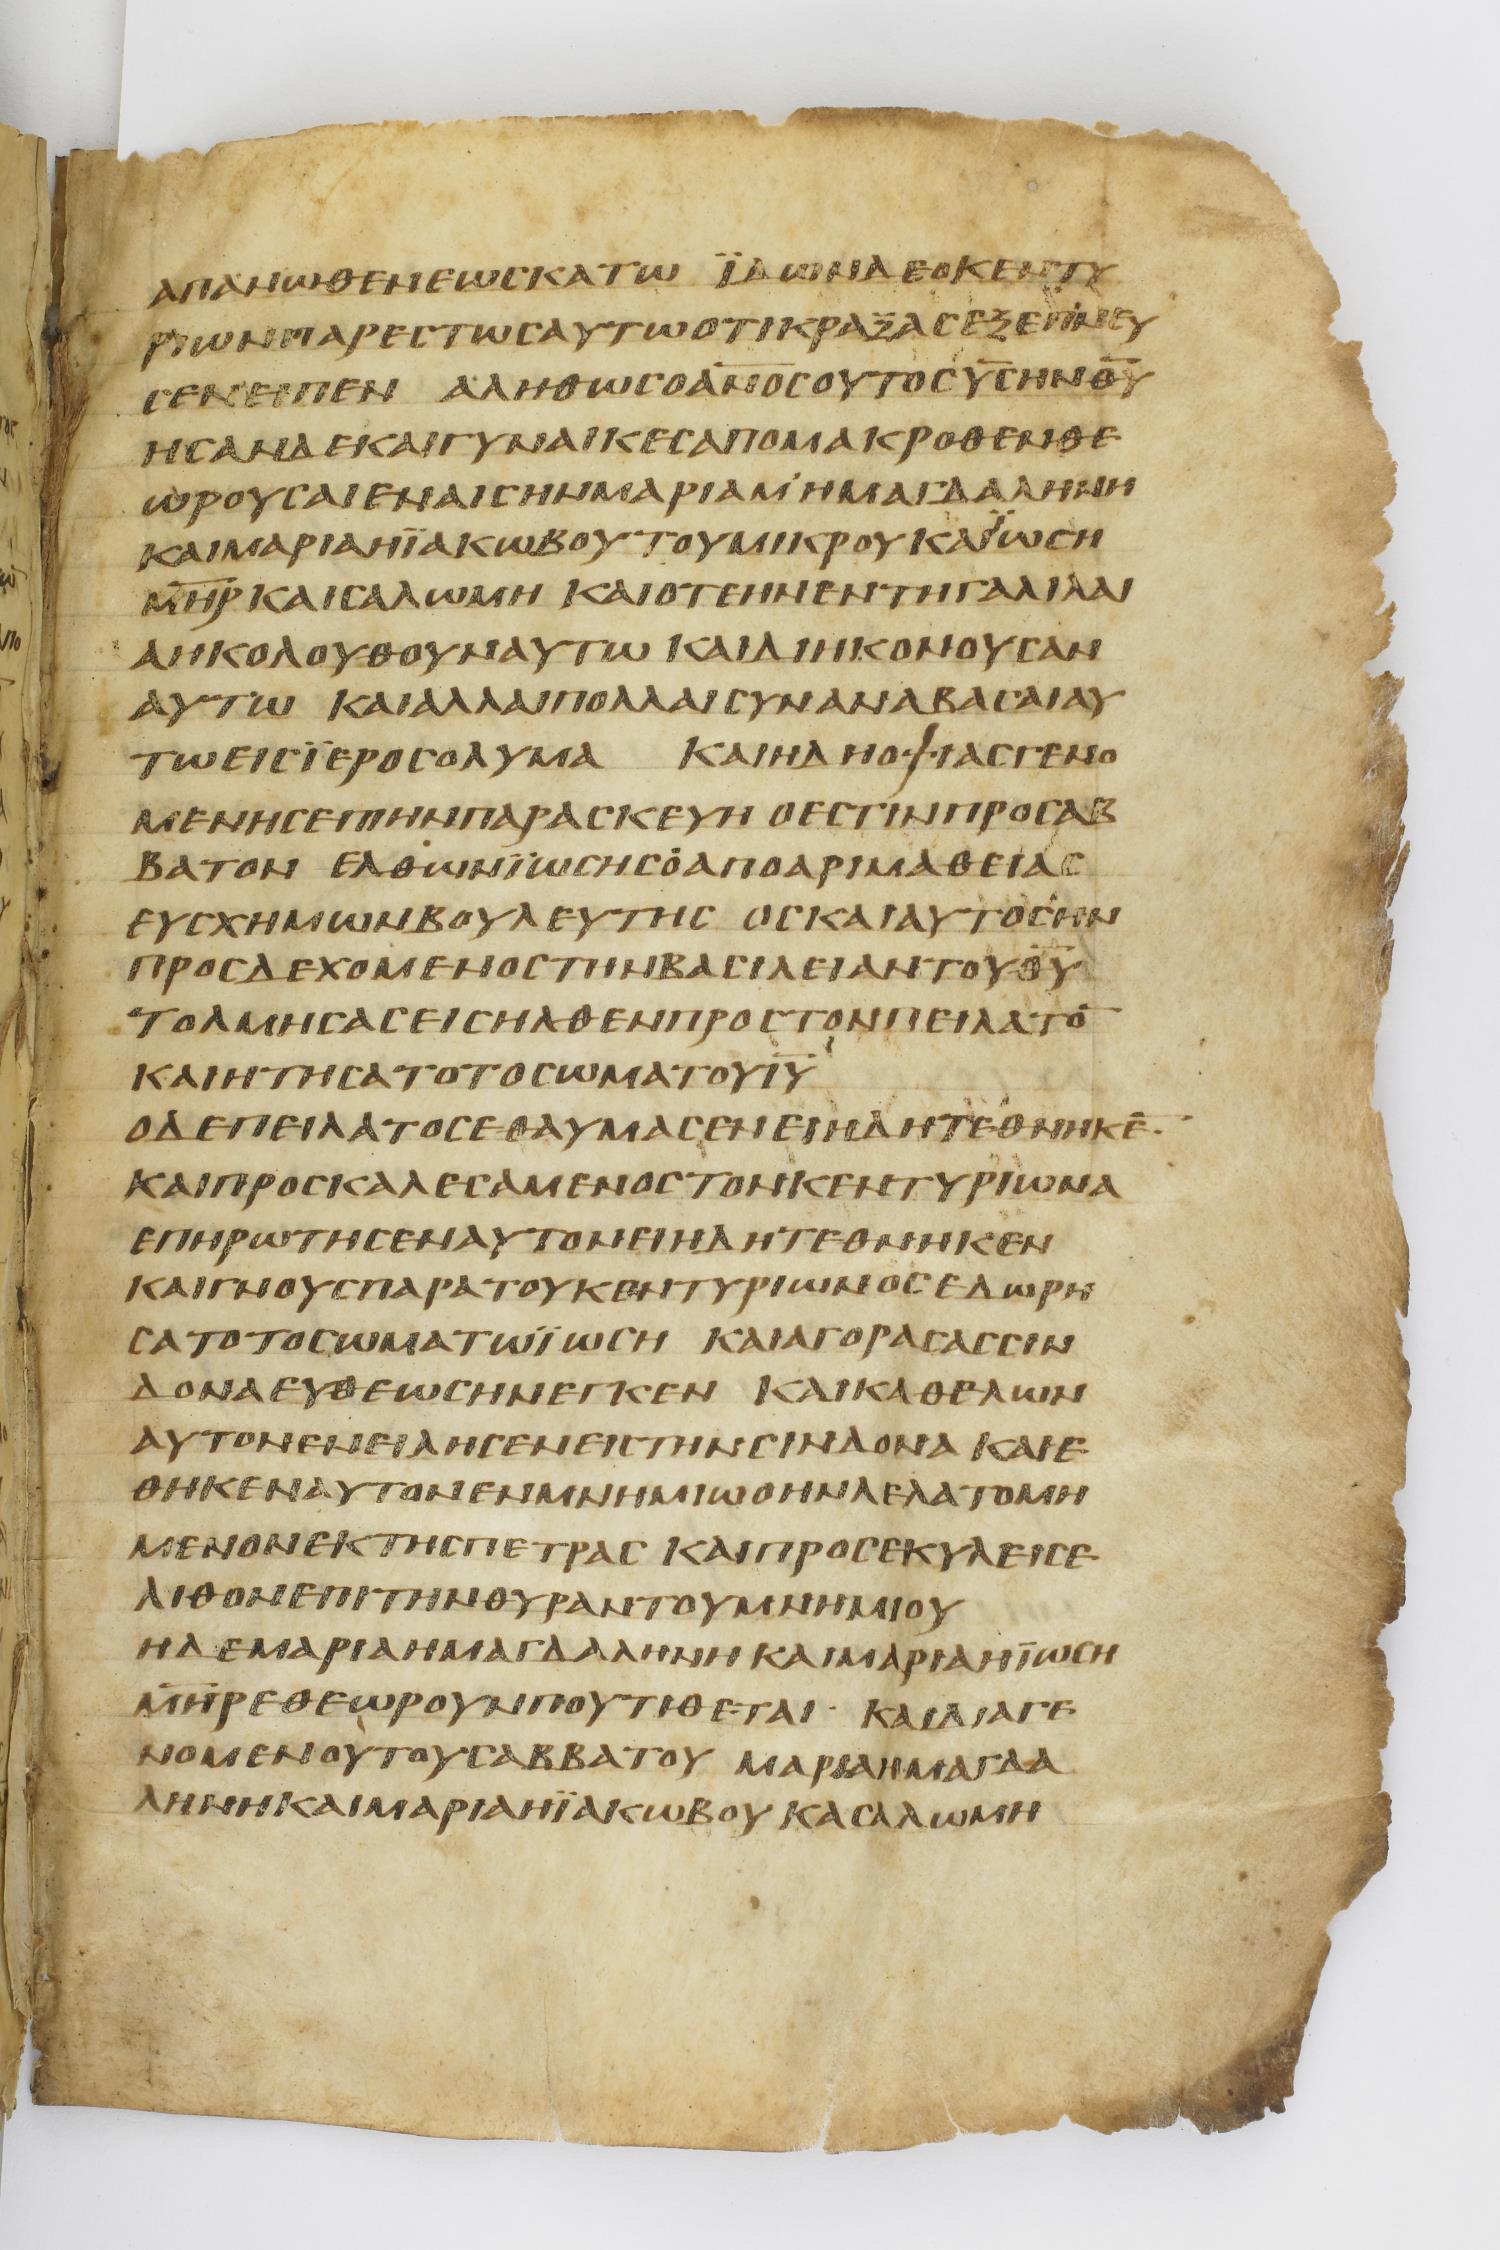 ΑΠΑΝΩΘΕΝΕΩΣΚΑΤΩ ΪΔΩΝΔΕΟΚΕΝΤΥ
ΡΙΩΝΠΑΡΕΣΤΩΣΑΥΤΩΟΤΙΚΡΑΞΑΣΕΞΕΠΝΕΥ
ΣΕΝΕΙΠΕΝ ΑΛΗΘΩΣΟΑ̅Ν̅Ο̅Σ̅ΟΥΤΟΣΥ̅Σ̅ΗΝΘ̅Υ̅
ΗΣΑΝΔΕΚΑΙΓΥΝΑΙΚΕΣΑΠΟΜΑΚΡΟΘΕΝΘΕ
ΩΡΟΥΣΑΙΕΝΑΙΣΗΝΜΑΡΙΑΜʼΗΜΑΓΔΑΛΗΝΗ
ΚΑΙΜΑΡΙΑΗΪΑΚΩΒΟΥΤΟΥΜΙΚΡΟΥΚΑΪΩΣΗ
Μ̅Η̅Ρ̅ΚΑΙΣΑΛΩΜΗ ΚΑΙΟΤΕΗΝΕΝΤΗΓΑΛΙΛΑΙ
ΑΗΚΟΛΟΥΘΟΥΝΑΥΤΩ ΚΑΙΔΙΗΚΟΝΟΥΣΑΝ
ΑΥΤΩ ΚΑΙΑΛΛΑΙΠΟΛΛΑΙΣΥΝΑΝΑΒΑΣΑΙΑΥ
ΤΩΕΙΣΪΕΡΟΣΟΛΥΜΑ ΚΑΙΗΔΗΟΨΙΑΣΓΕΝΟ
ΜΕΝΗΣΕΠΙΗΝΠΑΡΑΣΚΕΥΗ ΟΕΣΤΙΝΠΡΟΣΑΒ
ΒΑΤΟΝ ΕΛΘΩΝΪΩΣΗΣΟΑΠΟΑΡΙΜΑΘΕΙΑΣ
ΕΥΣΧΗΜΩΝΒΟΥΛΕΥΤΗΣ ΟΣΚΑΙΑΥΤΟΣΗΝ
ΠΡΟΣΔΕΧΟΜΕΝΟΣΤΗΝΒΑΣΙΛΕΙΑΝΤΟΥΘ̅Υ̅
ΤΟΛΜΗΣΑΣΕΙΣΗΛΘΕΝΠΡΟΣΤΟΝΠΕΙΛΑΤΟ̅
ΚΑΙΗΤΗΣΑΤΟΤΟΣΩΜΑΤΟΥΙ̅Υ̅
ΟΔΕΠΕΙΛΑΤΟΣΕΘΑΥΜΑΣΕΝΕΙΗΔΗΤΕΘΝΗΚΕ̅·
ΚΑΙΠΡΟΣΚΑΛΕΣΑΜΕΝΟΣΤΟΝΚΕΝΤΥΡΙΩΝΑ
ΕΠΗΡΩΤΗΣΕΝΑΥΤΟΝΕΙΗΔΗΤΕΘΝΗΚΕΝ
ΚΑΙΓΝΟΥΣΠΑΡΑΤΟΥΚΕΝΤΥΡΙΩΝΟΣΕΔΩΡΗ
ΣΑΤΟΤΟΣΩΜΑΤΩΪΩΣΗ ΚΑΙΑΓΟΡΑΣΑΣΣΙΝ
ΔΟΝΑΕΥΘΕΩΣΗΝΕΓΚΕΝ ΚΑΙΚΑΘΕΛΩΝ
ΑΥΤΟΝΕΝΕΙΛΗΣΕΝΕΙΣΤΗΝΣΙΝΔΟΝΑ ΚΑΙΕ
ΘΗΚΕΝΑΥΤΟΝΕΝΜΝΗΜΙΩΟΗΝΛΕΛΑΤΟΜΗ
ΜΕΝΟΝΕΚΤΗΣΠΕΤΡΑΣ ΚΑΙΠΡΟΣΕΚΥΛΕΙΣΕ
ΛΙΘΟΝΕΠΙΤΗΝΘΥΡΑΝΤΟΥΜΝΗΜΙΟΥ
ΗΔΕΜΑΡΙΑΗΜΑΓΔΑΛΗΝΗΚΑΙΜΑΡΙΑΗΪΩΣΗ
Μ̅Η̅Ρ̅ΕΘΕΩΡΟΥΝΠΟΥΤΙΘΕΤΑΙ· ΚΑΙΔΙΑΓΕ
ΝΟΜΕΝΟΥΤΟΥΣΑΒΒΑΤΟΥ ΜΑΡΙΑΗΜΑΓΔΑ
ΛΗΝΗΚΑΙΜΑΡΙΑΗΪΑΚΩΒΟΥ ΚΑΣΑΛΩΜΗ